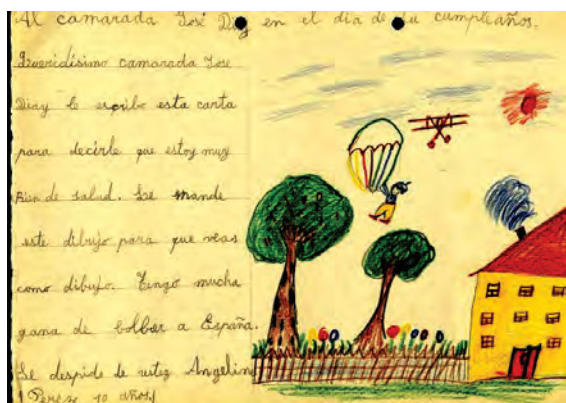 Al camarada José Diaz en el día de su cumpleaños.
Queridísimo camarada Jose
Diaz le escribo esta carta
para decirle que estoy muy
bien de salud. Le mande
este dibujo para que veas
como dibujo. Tengo mucha
gana de bolber a España.
Se despide de ustez Angelin
Perez 10 años.